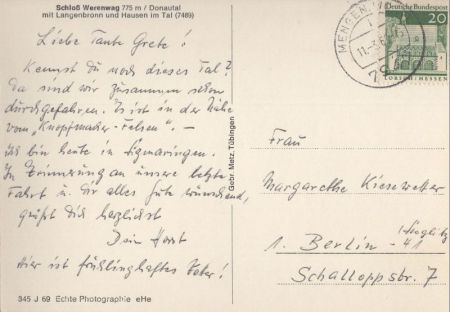 Schloß Werenwag 775 m / Donautal
mit Langenbronn und Hausen im Tal (7489)
Liebe Tante Grete!
Kennst Du noch dieses Tal?
Da sind wir zusammen schon
durchgefahren. Es ist in der Nähe
vom "Knopfmacher-Felsen". –
Ich bin heute in Sigmaringen.
In Erinnerung an unsere letzte
Fahrt u. Dir alles Gute wünschend,
grüßt Dich herzlichst
Dein Horst
Hier ist frühlinghaftes Wetter!
345 J 69 Echte Photographie eHe
Gebr. Metz, Tübingen
MENGEN
Deutsche Bundespost
20
LORSCH/HESSEN
Frau
Margarethe Kiesewetter
1. Berlin - 41
(Steglitz)
Schalloppstr. 7